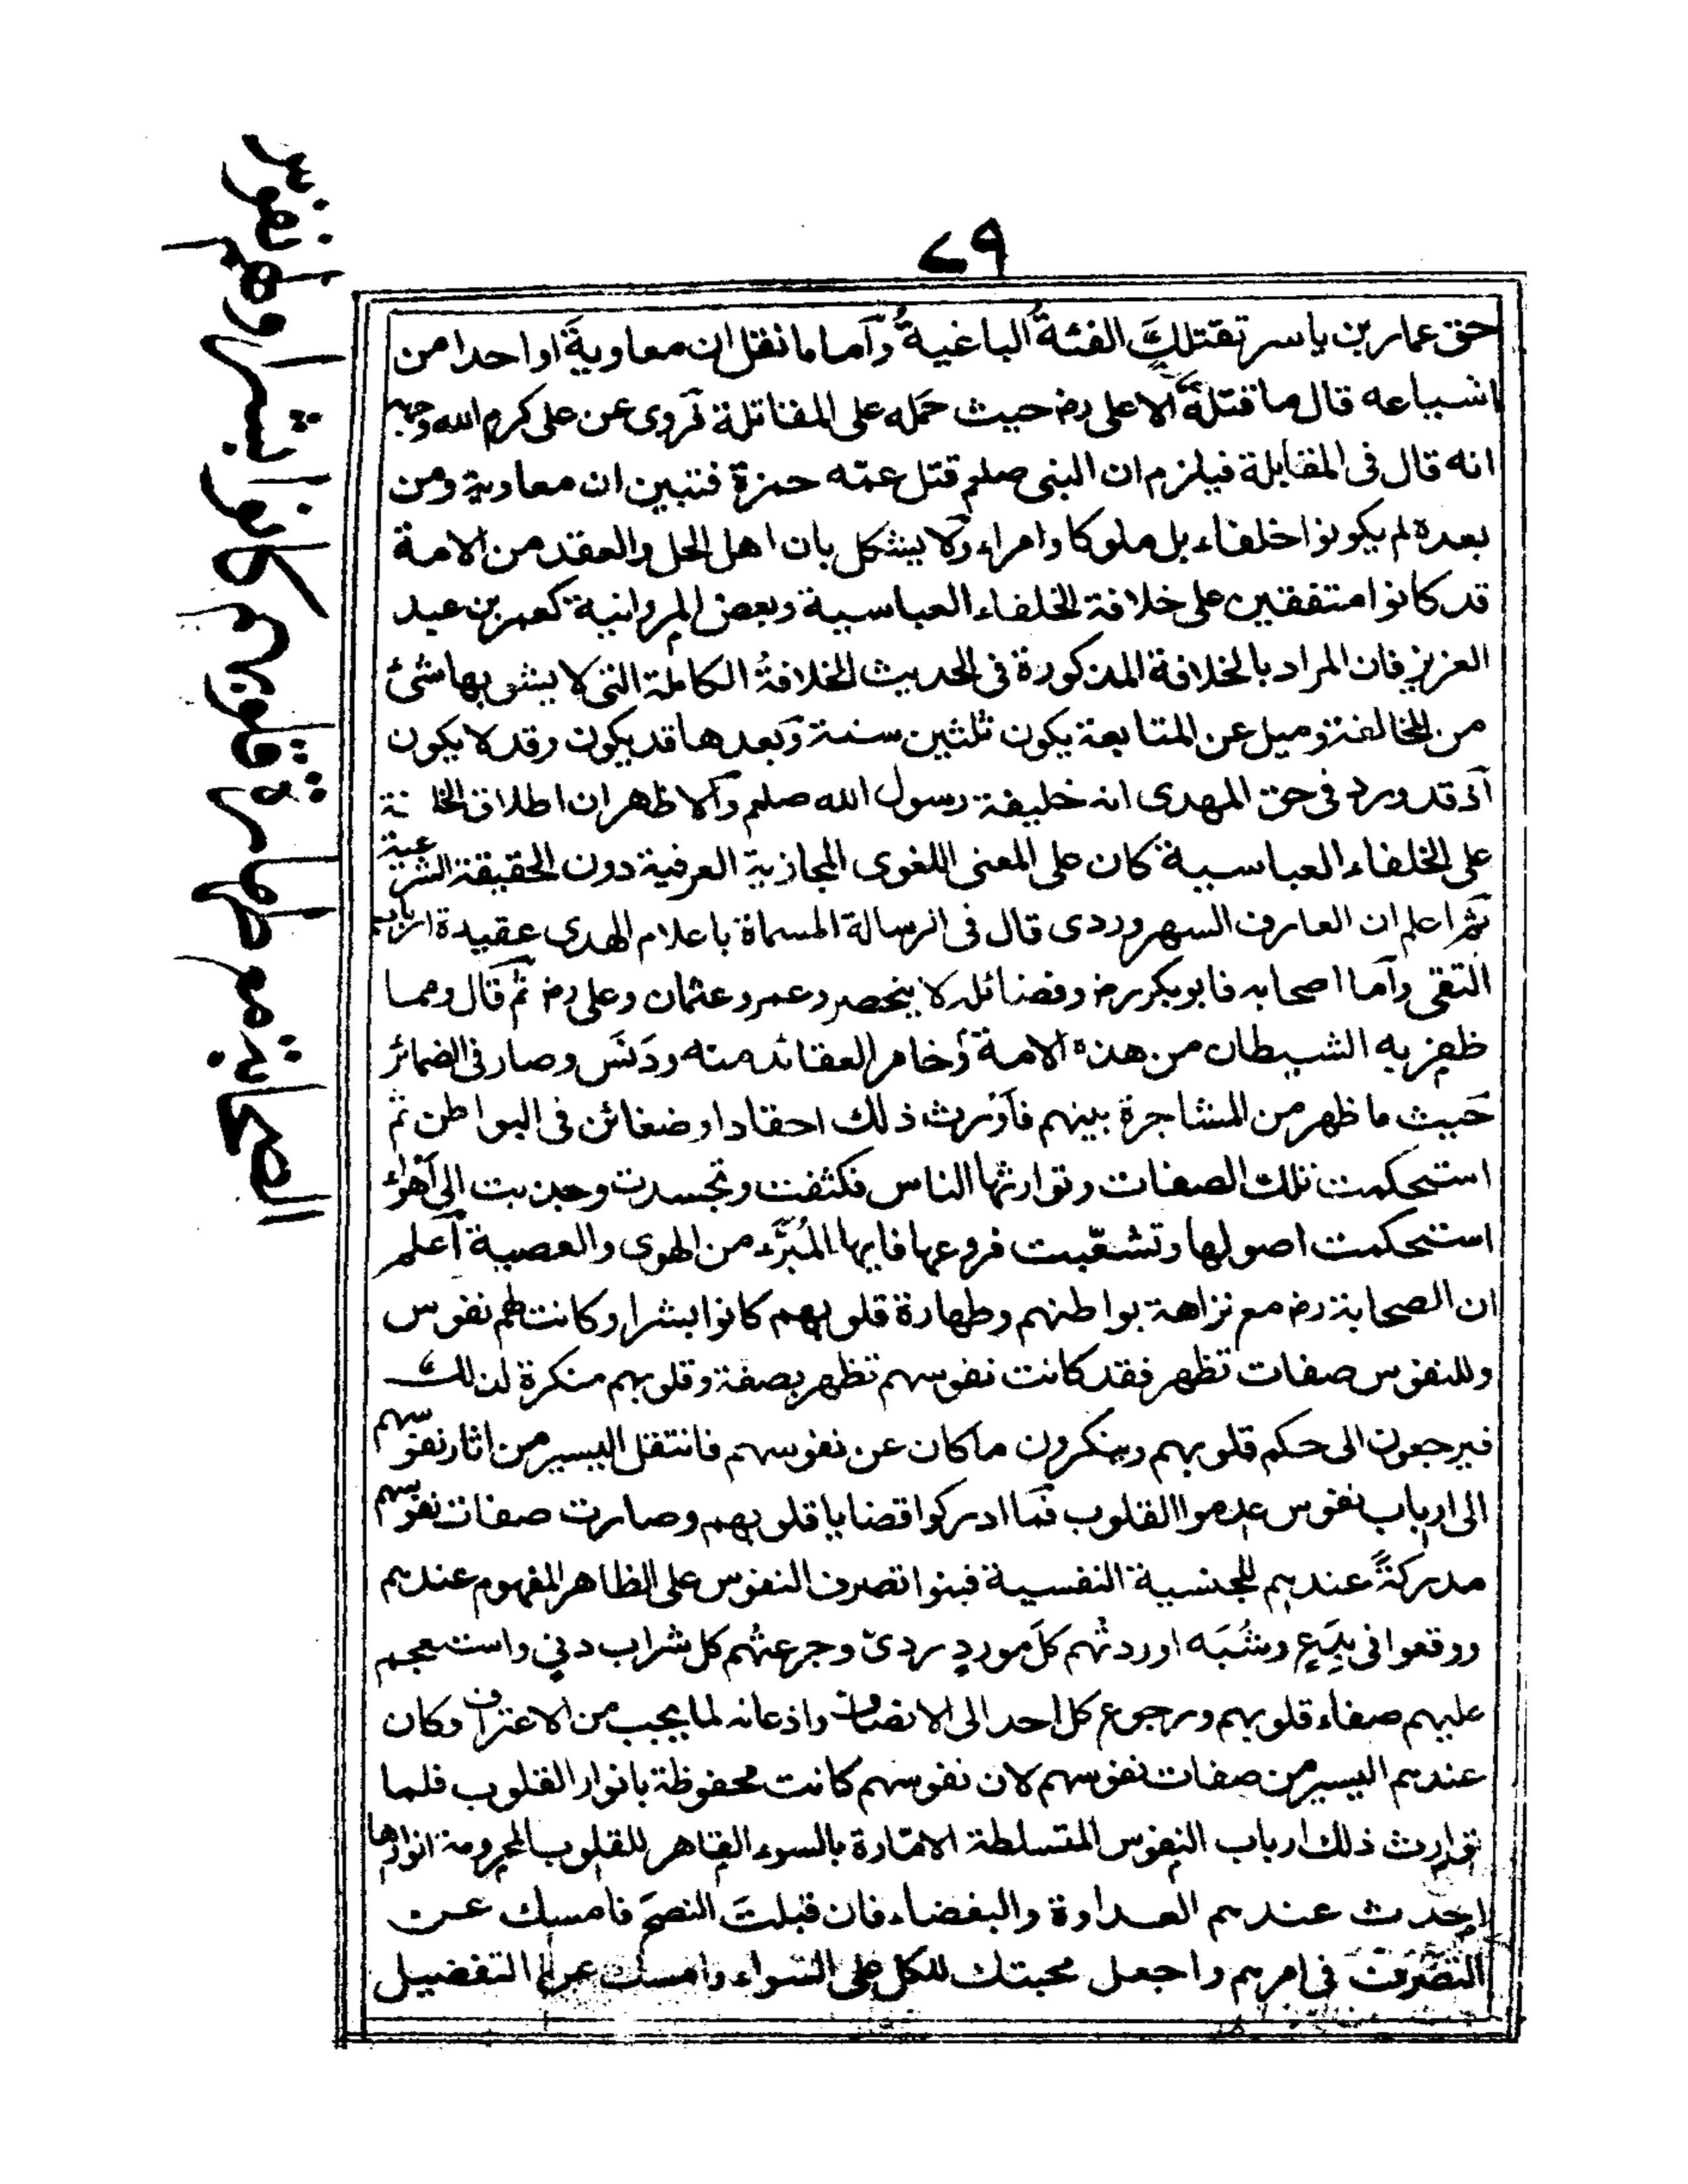 ٧٩
حق عمار بن ياسر تقتلك الفئة الباغية وأما ما نقل ان معاوية او احدا من
اشياعه قال ما قتلة الا على رض حيث حمله على المقاتلة فروى عن على كرم الله وجهه
انه قال فى المقابلة فيلزم ان النبى صلعم قتل عمّه حمزة فتبين ان معاوية ومن
بعده لم يكونوا خلفاء بل ملوكا وامراء ولا يشكل بان اهل الحل والعقد من الامة
قد كانوا متفقين على خلافة الخلفاء العباسية وبعض المروانية كعمر بن عبد
العزيز فان المراد بالخلافة المذكورة فى الحديث الخلافةُ الكاملة التى لا يشوبها شئ
من المخالفة وميل عن المتابعة يكون ثلثين سنة وبعدها قد يكون وقد لا يكون
اذ قد ورد فى حق المهدى انه خليفة رسول الله صلعم والاظهر ان اطلاق الخلافة
على الخلفاء العباسية كان على المعنى اللغوى المجازية العرفية دون الحقيقة الشرعية
ثم اعلم ان العارف السهروردى قال فى الرسالة المسماة باعلام الهدى عقيدة ارباب
التقى وأما اصحابه فابو بكر رض وفضائله لا ينحصر وعمر وعثمان وعلى رض ثم قال ومما
ظفر به الشيطان من هذه الامة وخامر العقائد منه ودنس وصار فى الضمائر
خبيث ما ظهر من المشاجرة بينهم فأورث ذلك احقادا وضغائن فى البواطن ثم
استحكمت تلك الصفات وتوارثها الناس فكثفت وتجسدت وجذبت الى اهواء
استحكمت اصولها وتشعّبت فروعها فايها المُبَرَّء من الهوى والعصبية اعلم
ان الصحابة رض مع نزاهة بواطنهم وطهارة قلوبهم كانوا بشرا وكانت لهم نفوس
وللنفوس صفات تظهر فقد كانت نفوسهم تظهر بصفة وقلوبهم منكرة لذلك
فيرجعون الى حكم قلوبهم وينكرون ما كان عن نفوسهم فانتقل اليسير من اثار نفوسهم
الى ارباب نفوس عدموا القلوب فما ادركوا قضايا قلوبهم وصارت صفات نفوسهم
مدركةً عندهم للجنسية النفسية فبنوا تصرف النفوس على الظاهر المفهوم عندهم
ووقعوا فى بِدَعٍ وشُبَه اوردتهم كل موردٍ ردئ وجرعتهم كل شراب دنى واستعجم
عليهم صفاء قلوبهم ورجوع كل احد الى الانصاف واذعانه لما يجب من الاعتراف وكان
عندهم اليسير من صفات نفوسهم لان نفوسهم كانت محفوظة بانوار القلوب فلما
توارث ذلك ارباب النفوس المتسلطة الامّارة بالسوء القاهر للقلوب المحرومة انوارها
احدث عندهم العداوة والبغضاء فان قبلت النصح فامسك عن
التصرف فى امرهم واجعل محبتك للكل على السواء وامسك عن التفضيل
الصحابة مع طهارة قلوبهم كانوا بشرا ولهم نفوس